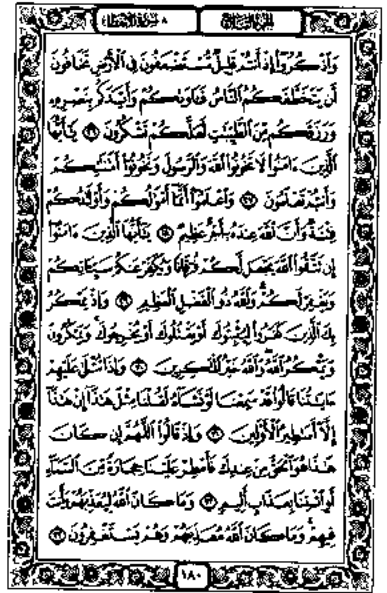 الجزء التاسع ٨ سورة الأنفال
وَٱذْكُرُوٓا۟ إِذْ أَنتُمْ قَلِيلٌ مُّسْتَضْعَفُونَ فِى ٱلْأَرْضِ تَخَافُونَ
أَن يَتَخَطَّفَكُمُ ٱلنَّاسُ فَـَٔاوَىٰكُمْ وَأَيَّدَكُم بِنَصْرِهِۦ
وَرَزَقَكُم مِّنَ ٱلطَّيِّبَـٰتِ لَعَلَّكُمْ تَشْكُرُونَ ٢٦ يَـٰٓأَيُّهَا
ٱلَّذِينَ ءَامَنُوا۟ لَا تَخُونُوا۟ ٱللَّهَ وَٱلرَّسُولَ وَتَخُونُوٓا۟ أَمَـٰنَـٰتِكُمْ
وَأَنتُمْ تَعْلَمُونَ ٢٧ وَٱعْلَمُوٓا۟ أَنَّمَآ أَمْوَٰلُكُمْ وَأَوْلَـٰدُكُمْ
فِتْنَةٌ وَأَنَّ ٱللَّهَ عِندَهُۥٓ أَجْرٌ عَظِيمٌ ٢٨ يَـٰٓأَيُّهَا ٱلَّذِينَ ءَامَنُوٓا۟
إِن تَتَّقُوا۟ ٱللَّهَ يَجْعَل لَّكُمْ فُرْقَانًا وَيُكَفِّرْ عَنكُمْ سَيِّـَٔاتِكُمْ
وَيَغْفِرْ لَكُمْ وَٱللَّهُ ذُو ٱلْفَضْلِ ٱلْعَظِيمِ ٢٩ وَإِذْ يَمْكُرُ
بِكَ ٱلَّذِينَ كَفَرُوا۟ لِيُثْبِتُوكَ أَوْ يَقْتُلُوكَ أَوْ يُخْرِجُوكَ وَيَمْكُرُونَ
وَيَمْكُرُ ٱللَّهُ وَٱللَّهُ خَيْرُ ٱلْمَـٰكِرِينَ ٣٠ وَإِذَا تُتْلَىٰ عَلَيْهِمْ
ءَايَـٰتُنَا قَالُوا۟ قَدْ سَمِعْنَا لَوْ نَشَآءُ لَقُلْنَا مِثْلَ هَـٰذَآ إِنْ هَـٰذَآ
إِلَّآ أَسَـٰطِيرُ ٱلْأَوَّلِينَ ٣١ وَإِذْ قَالُوا۟ ٱللَّهُمَّ إِن كَانَ
هَـٰذَا هُوَ ٱلْحَقَّ مِنْ عِندِكَ فَأَمْطِرْ عَلَيْنَا حِجَارَةً مِّنَ ٱلسَّمَآءِ
أَوِ ٱئْتِنَا بِعَذَابٍ أَلِيمٍ ٣٢ وَمَا كَانَ ٱللَّهُ لِيُعَذِّبَهُمْ وَأَنتَ
فِيهِمْ وَمَا كَانَ ٱللَّهُ مُعَذِّبَهُمْ وَهُمْ يَسْتَغْفِرُونَ ٣٣
١٨٠